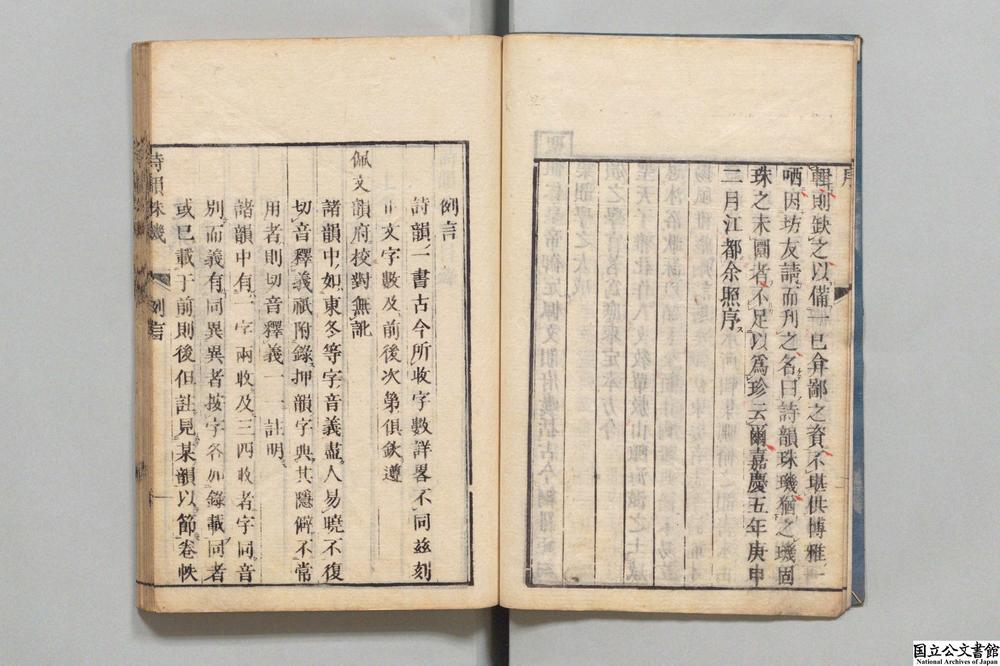 序
輯則缺之以備一己弇鄙之資不堪供博雅一
哂因坊友請而刋之名曰詩韻珠璣猶之璣固
珠之未圓者不足以爲珍云爾嘉慶五年庚申
三月江都余照序
例言
詩韻一書古今所收字數詳畧不同兹刻
正文字數及前後次第俱欽遵
佩文韻府校對無訛
諸韻中如東冬等字音義盡人易曉不復
切音釋義祇附錄押韻字典其隱僻不常
用者則切音釋義一一註明
諸韻中有一字兩收及三四收者字同音
別而義有同異異者按字各如錄載同者
或已載于前則後但註見某韻以節卷帙
詩韻珠璣
例言
一
国立公文書館
National Archives of Japan